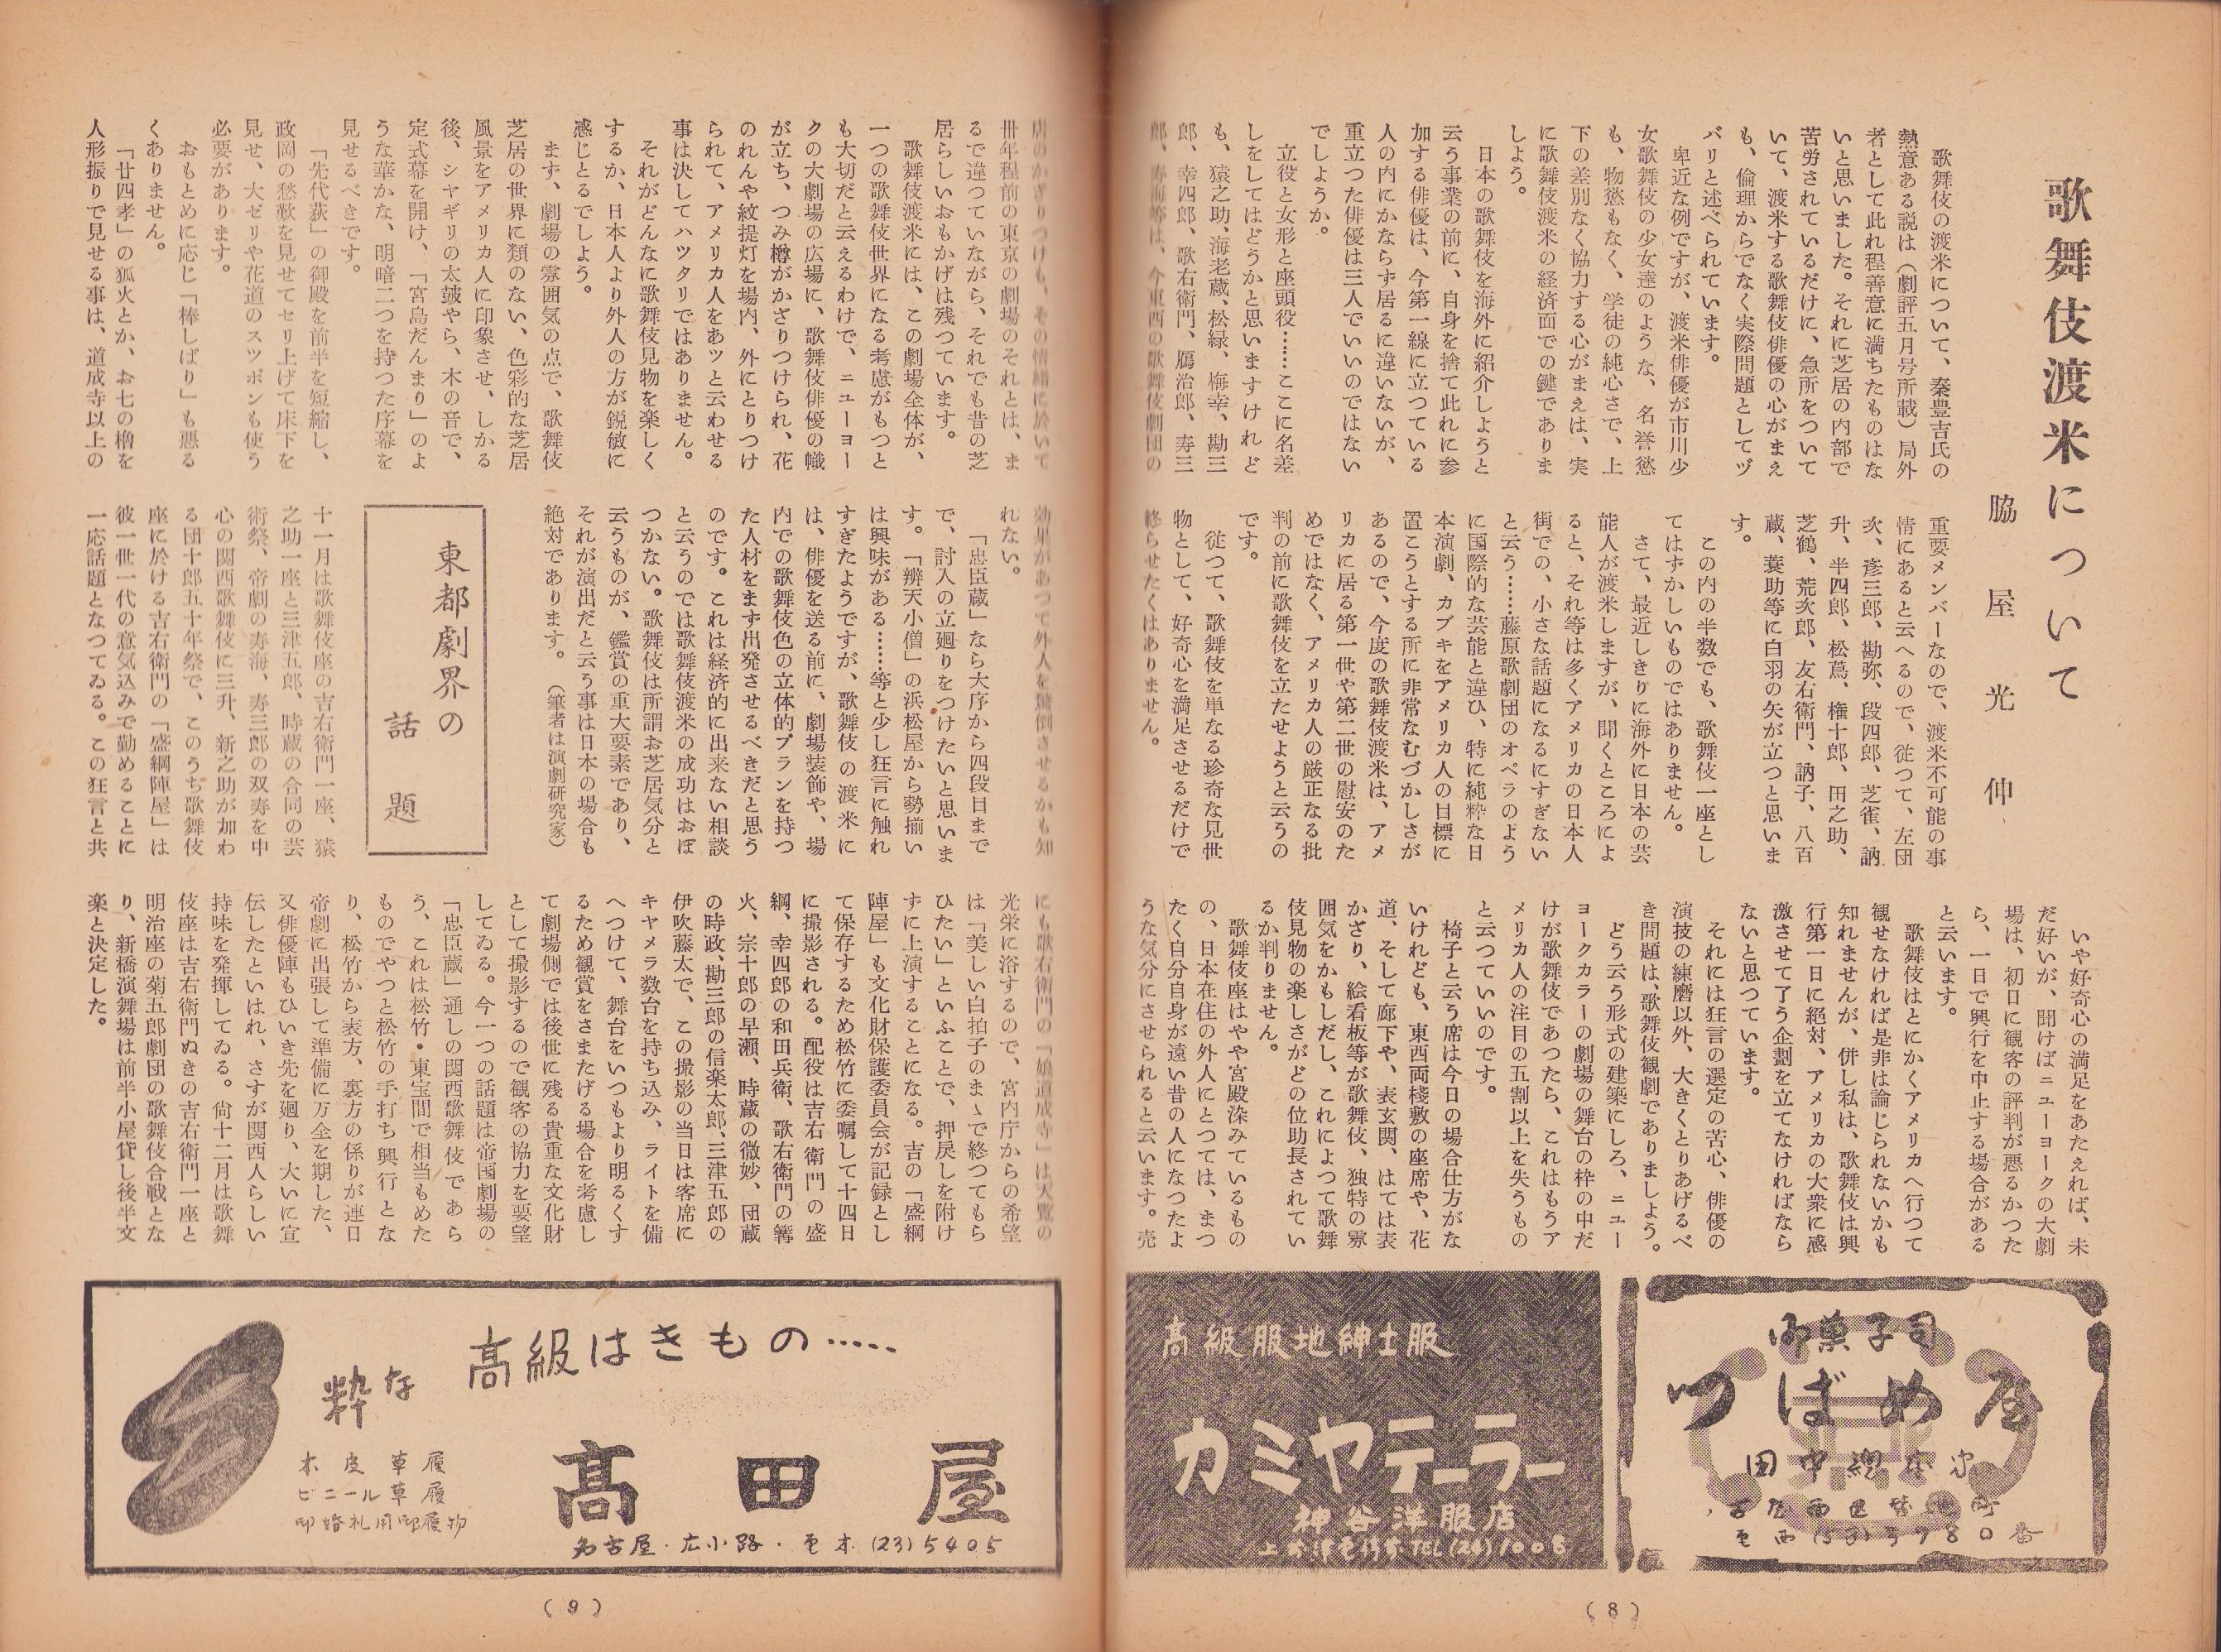 歌舞伎渡米について
脇屋光仲
歌舞伎の渡米について、秦豊吉氏の
熱意ある説は(劇評五月号所載)局外
者として此れ程善意に満ちたものはな
いと思いました。それに芝居の内部で
苦労されているだけに、急所をついて
いて、渡米する歌舞伎俳優の心がまえ
も、倫理からでなく実際問題としてヅ
バリと述べられています。
卑近な例ですが、渡米俳優が市川少
女歌舞伎の少女達のような、名誉慾
も、物慾もなく、学徒の純心さで、上
下の差別なく協力する心がまえは、実
に歌舞伎渡米の経済面での鍵でありま
しよう。
日本の歌舞伎を海外に紹介しようと
云う事業の前に、自身を捨て此れに参
加する俳優は、今第一線に立つている
人の内にかならず居るに違いないが、
重立つた俳優は三人でいいのではない
でしようか。
立役と女形と座頭役……ここに名差
しをしてはどうかと思いますけれど
も、猿之助、海老蔵、松緑、梅幸、勘三
郎、幸四郎、歌右衛門、鴈治郎、寿三
郎、寿海等は、今東西の歌舞伎劇団の
重要メンバーなので、渡米不可能の事
情にあると云へるので、従つて、左団
次、彦三郎、勘弥、段四郎、芝雀、訥
升、半四郎、松蔦、権十郎、田之助、
芝鶴、荒次郎、友右衛門、訥子、八百
蔵、蓑助等に白羽の矢が立つと思いま
す。
この内の半数でも、歌舞伎一座とし
てはずかしいものではありません。
さて、最近しきりに海外に日本の芸
能人が渡米しますが、聞くところによ
ると、それ等は多くアメリカの日本人
街での、小さな話題になるにすぎない
と云う……藤原歌劇団のオペラのよう
に国際的な芸能と違ひ、特に純粋な日
本演劇、カブキをアメリカ人の目標に
置こうとする所に非常なむづかしさが
あるので、今度の歌舞伎渡米は、アメ
リカに居る第一世や第二世の慰安のた
めではなく、アメリカ人の厳正なる批
判の前に歌舞伎を立たせようと云うの
です。
従つて、歌舞伎を単なる珍奇な見世
物として、好奇心を満足させるだけで
終らせたくはありません。
いや好奇心の満足をあたえれば、未
だ好いが、聞けばニューヨークの大劇
場は、初日に観客の評判が悪るかつた
ら、一日で興行を中止する場合がある
と云います。
歌舞伎はとにかくアメリカへ行つて
観せなければ是非は論じられないかも
知れませんが、併し私は、歌舞伎は興
行第一日に絶対、アメリカの大衆に感
激させて了う企劃を立てなければなら
ないと思つています。
それには狂言の選定の苦心、俳優の
演技の練磨以外、大きくとりあげるべ
き問題は、歌舞伎観劇でありましよう。
どう云う形式の建築にしろ、ニュー
ヨークカラーの劇場の舞台の枠の中だ
けが歌舞伎であつたら、これはもうア
メリカ人の注目の五割以上を失うもの
と云つていいのです。
椅子と云う席は今日の場合仕方がな
いけれども、東西両棧敷の座席や、花
道、そして廊下や、表玄関、はては表
かざり、絵看板等が歌舞伎、独特の雰
囲気をかもしだし、これによつて歌舞
伎見物の楽しさがどの位助長されてい
るか判りません。
歌舞伎座はやや宮殿染みているもの
の、日本在住の外人にとつては、まつ
たく自分自身が遠い昔の人になつたよ
うな気分にさせられると云います。売
御菓子司
つばめ屋
田中総本家
高級服地紳士服
カミヤテーラー
神谷洋服店
TEL(24)1008
(8)
店のかざりつけも、その情緒に於いて
卅年程前の東京の劇場のそれとは、ま
るで違つていながら、それでも昔の芝
居らしいおもかげは残つています。
歌舞伎渡米には、この劇場全体が、
一つの歌舞伎世界になる考慮がもつと
も大切だと云えるわけで、ニューヨー
クの大劇場の広場に、歌舞伎俳優の幟
が立ち、つみ樽がかざりつけられ、花
のれんや紋提灯を場内、外にとりつけ
られて、アメリカ人をあッと云わせる
事は決してハツタリではありません。
それがどんなに歌舞伎見物を楽しく
するか、日本人より外人の方が鋭敏に
感じとるでしよう。
まず、劇場の雰囲気の点で、歌舞伎
芝居の世界に類のない、色彩的な芝居
風景をアメリカ人に印象させ、しかる
後、シャギリの太皷やら、木の音で、
定式幕を開け、「宮島だんまり」のよ
うな華かな、明暗二つを持つた序幕を
見せるべきです。
「先代萩」の御殿を前半を短縮し、
政岡の愁歎を見せてセリ上げて床下を
見せ、大ゼリや花道のスツポンも使う
必要があります。
おもとめに応じ「棒しばり」も悪る
くありません。
「廿四孝」の狐火とか、お七の櫓を
人形振りで見せる事は、道成寺以上の
効果があつて外人を驚倒させるかも知
れない。
「忠臣蔵」なら大序から四段目まで
で、討入の立廻りをつけたいと思いま
す。「辨天小僧」の浜松屋から勢揃い
は興味がある……等と少し狂言に触れ
すぎたようですが、歌舞伎の渡米に
は、俳優を送る前に、劇場装飾や、場
内での歌舞伎色の立体的プランを持つ
た人材をまず出発させるべきだと思う
のです。これは経済的に出来ない相談
と云うのでは歌舞伎渡米の成功はおぼ
つかない。歌舞伎は所謂お芝居気分と
云うものが、鑑賞の重大要素であり、
それが演出だと云う事は日本の場合も
絶対であります。(筆者は演劇研究家)
東都劇界の
話題
十一月は歌舞伎座の吉右衛門一座、猿
之助一座と三津五郎、時蔵の合同の芸
術祭、帝劇の寿海、寿三郎の双寿を中
心の関西歌舞伎に三升、新之助が加わ
る団十郎五十年祭で、このうち歌舞伎
座に於ける吉右衛門の「盛綱陣屋」は
彼一世一代の意気込みで勤めることに
一応話題となつてゐる。この狂言と共
にも歌右衛門の「娘道成寺」は天覧の
光栄に浴するので、宮内庁からの希望
は「美しい白拍子のまゝで終つてもら
ひたい」といふことで、押戻しを附け
ずに上演することになる。吉の「盛綱
陣屋」も文化財保護委員会が記録とし
て保存するため松竹に委嘱して十四日
に撮影される。配役は吉右衛門の盛
綱、幸四郎の和田兵衛、歌右衛門の篝
火、宗十郎の早瀬、時蔵の微妙、団蔵
の時政、勘三郎の信楽太郎、三津五郎の
伊吹藤太で、この撮影の当日は客席に
キャメラ数台を持ち込み、ライトを備
へつけて、舞台をいつもより明るくす
るため観賞をさまたげる場合を考慮し
て劇場側では後世に残る貴重な文化財
として撮影するので観客の協力を要望
してゐる。今一つの話題は帝国劇場の
「忠臣蔵」通しの関西歌舞伎であら
う、これは松竹・東宝間で相当もめた
ものでやつと松竹の手打ち興行とな
り、松竹から表方、裏方の係りが連日
帝劇に出張して準備に万全を期した、
又俳優陣もひいき先を廻り、大いに宣
伝したといはれ、さすが関西人らしい
持味を発揮してゐる。尚十二月は歌舞
伎座は吉右衛門ぬきの吉右衛門一座と
明治座の菊五郎劇団の歌舞伎合戦とな
り、新橋演舞場は前半小屋貸し後半文
楽と決定した。
高級はきもの……
粋な
高田屋
本皮草履
ビニール草履
御婚礼用御履物
名古屋・広小路・電本(23)5405
(9)